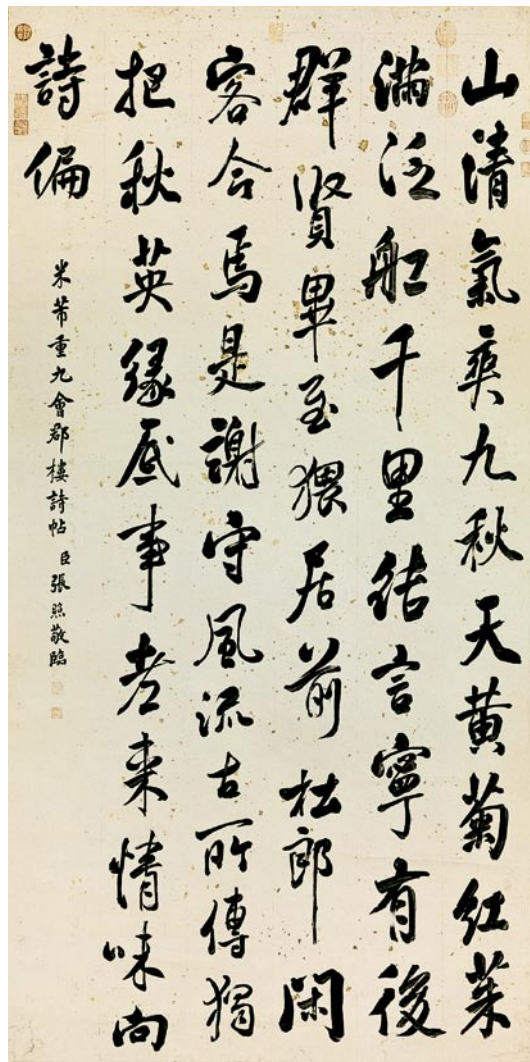 山清氣爽九秋天黄菊紅茱
滿泛船千里結言寧有後
群賢畢至猥居前杜郎閑
客今焉是謝守風流古所傳獨
把秋英緣底事老來情味向
詩偏
米芾重九會郡樓詩帖 臣張照敬臨